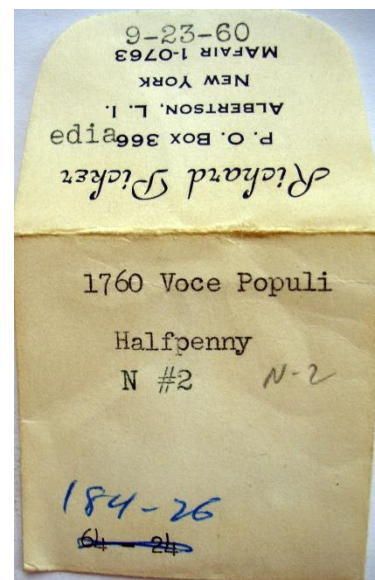 9-23-60
MAFAIR 1-0763
NEW YORK
ALBERTSON, L. I.
edia
P. O. BOX 366
Richard Picker
1760 Voce Populi
Halfpenny
N #2 N-2
184-26
64 - 24